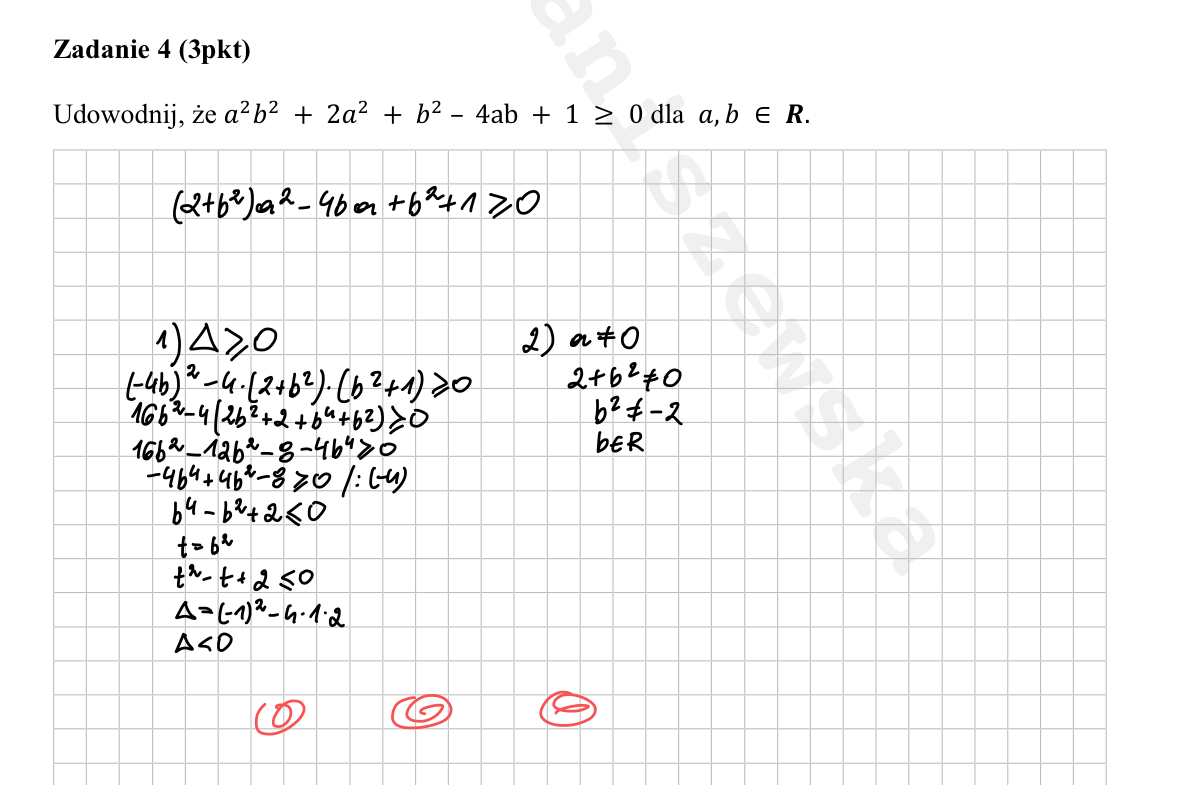 Zadanie 4 (3pkt)
Udowodnij, że a²b² + 2a² + b² – 4ab + 1 ≥ 0 dla a, b ∈ R.
(2+b²)a² - 4ba + b² + 1 ⩾ 0
1) Δ ⩾ 0
(-4b)² - 4·(2+b²)·(b²+1) ⩾ 0
16b² - 4(2b²+2+b⁴+b²) ⩾ 0
16b² - 12b² - 8 - 4b⁴ ⩾ 0
-4b⁴ + 4b² - 8 ⩾ 0 /:(-4)
b⁴ - b² + 2 ⩽ 0
t = b²
t² - t + 2 ⩽ 0
Δ = (-1)² - 4·1·2
Δ < 0
2) a ≠ 0
2 + b² ≠ 0
b² ≠ -2
b ∈ R
aniszewska